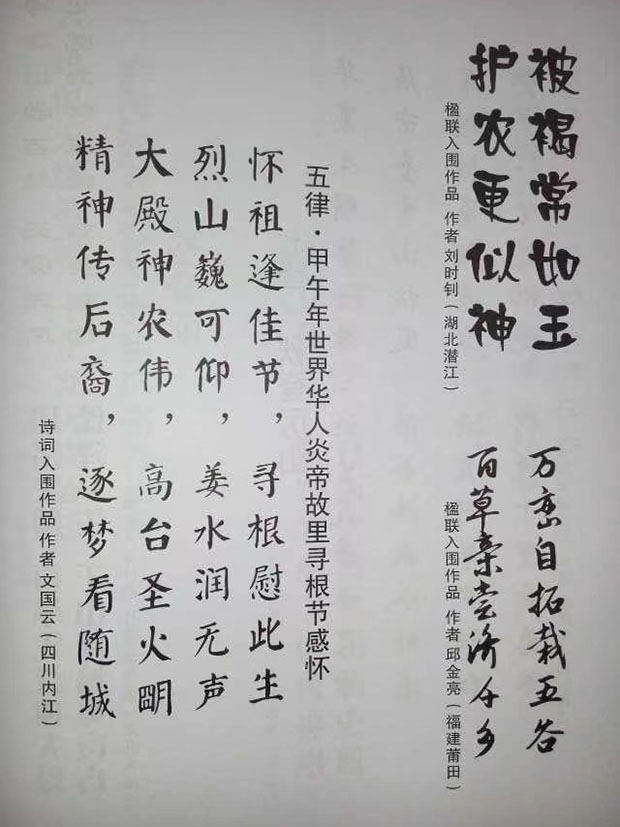 被褐常如玉
护农更似神
楹联入围作品 作者 刘时钊（湖北潜江）
万峦自拓栽五谷
百草亲尝济千乡
楹联入围作品 作者 邱金亮（福建莆田）
五律·甲午年世界华人炎帝故里寻根节感怀
怀祖逢佳节，寻根慰此生
烈山巍可仰，姜水润无声
大殿神农伟，高台圣火明
精神传后裔，逐梦看随城
诗词入围作品 作者 文国云（四川内江）